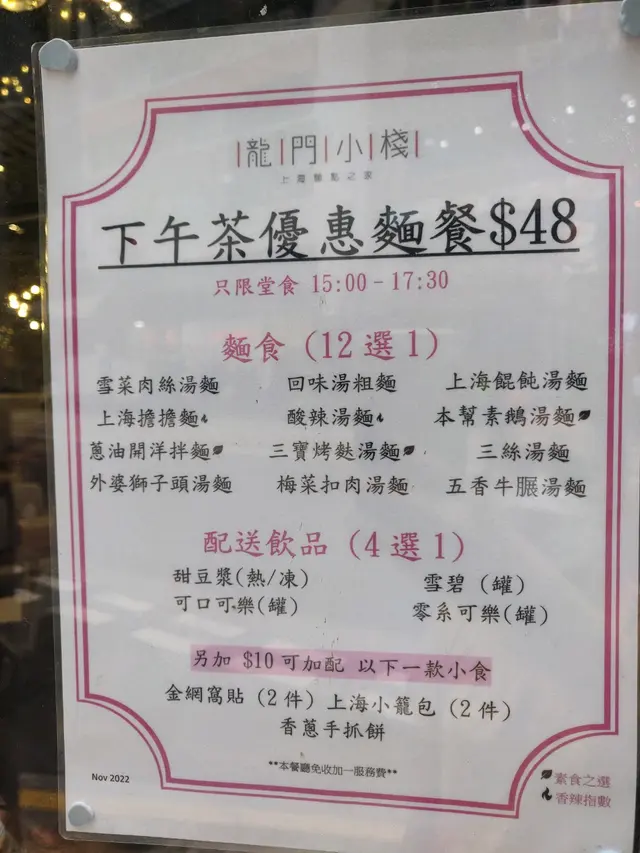 龍門小棧
上海麵點之家
下午茶優惠麵餐$48
只限堂食 15:00-17:30
麵食 (12 選 1)
雪菜肉絲湯麵 回味湯粗麵 上海餛飩湯麵
上海擔擔麵 酸辣湯麵 本幫素鵝湯麵
蔥油開洋拌麵 三寶烤麩湯麵 三絲湯麵
外婆獅子頭湯麵 梅菜扣肉湯麵 五香牛𦟌湯麵
配送飲品 (4 選 1)
甜豆漿(熱/凍) 雪碧 (罐)
可口可樂(罐) 零系可樂(罐)
另加 $10 可加配 以下一款小食
金網窩貼 (2 件) 上海小籠包 (2 件)
香蔥手抓餅
**本餐廳免收加一服務費**
Nov 2022
素食之選
香辣指數